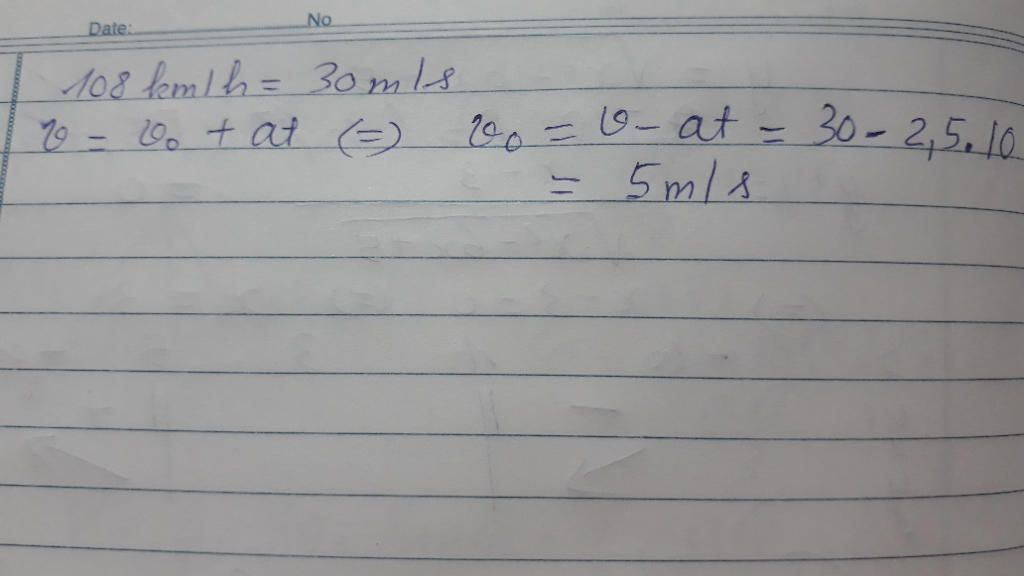 Date: No
108 km/h = 30 m/s
v = v₀ + at (=) v₀ = v - at = 30 - 2,5.10
= 5 m/s